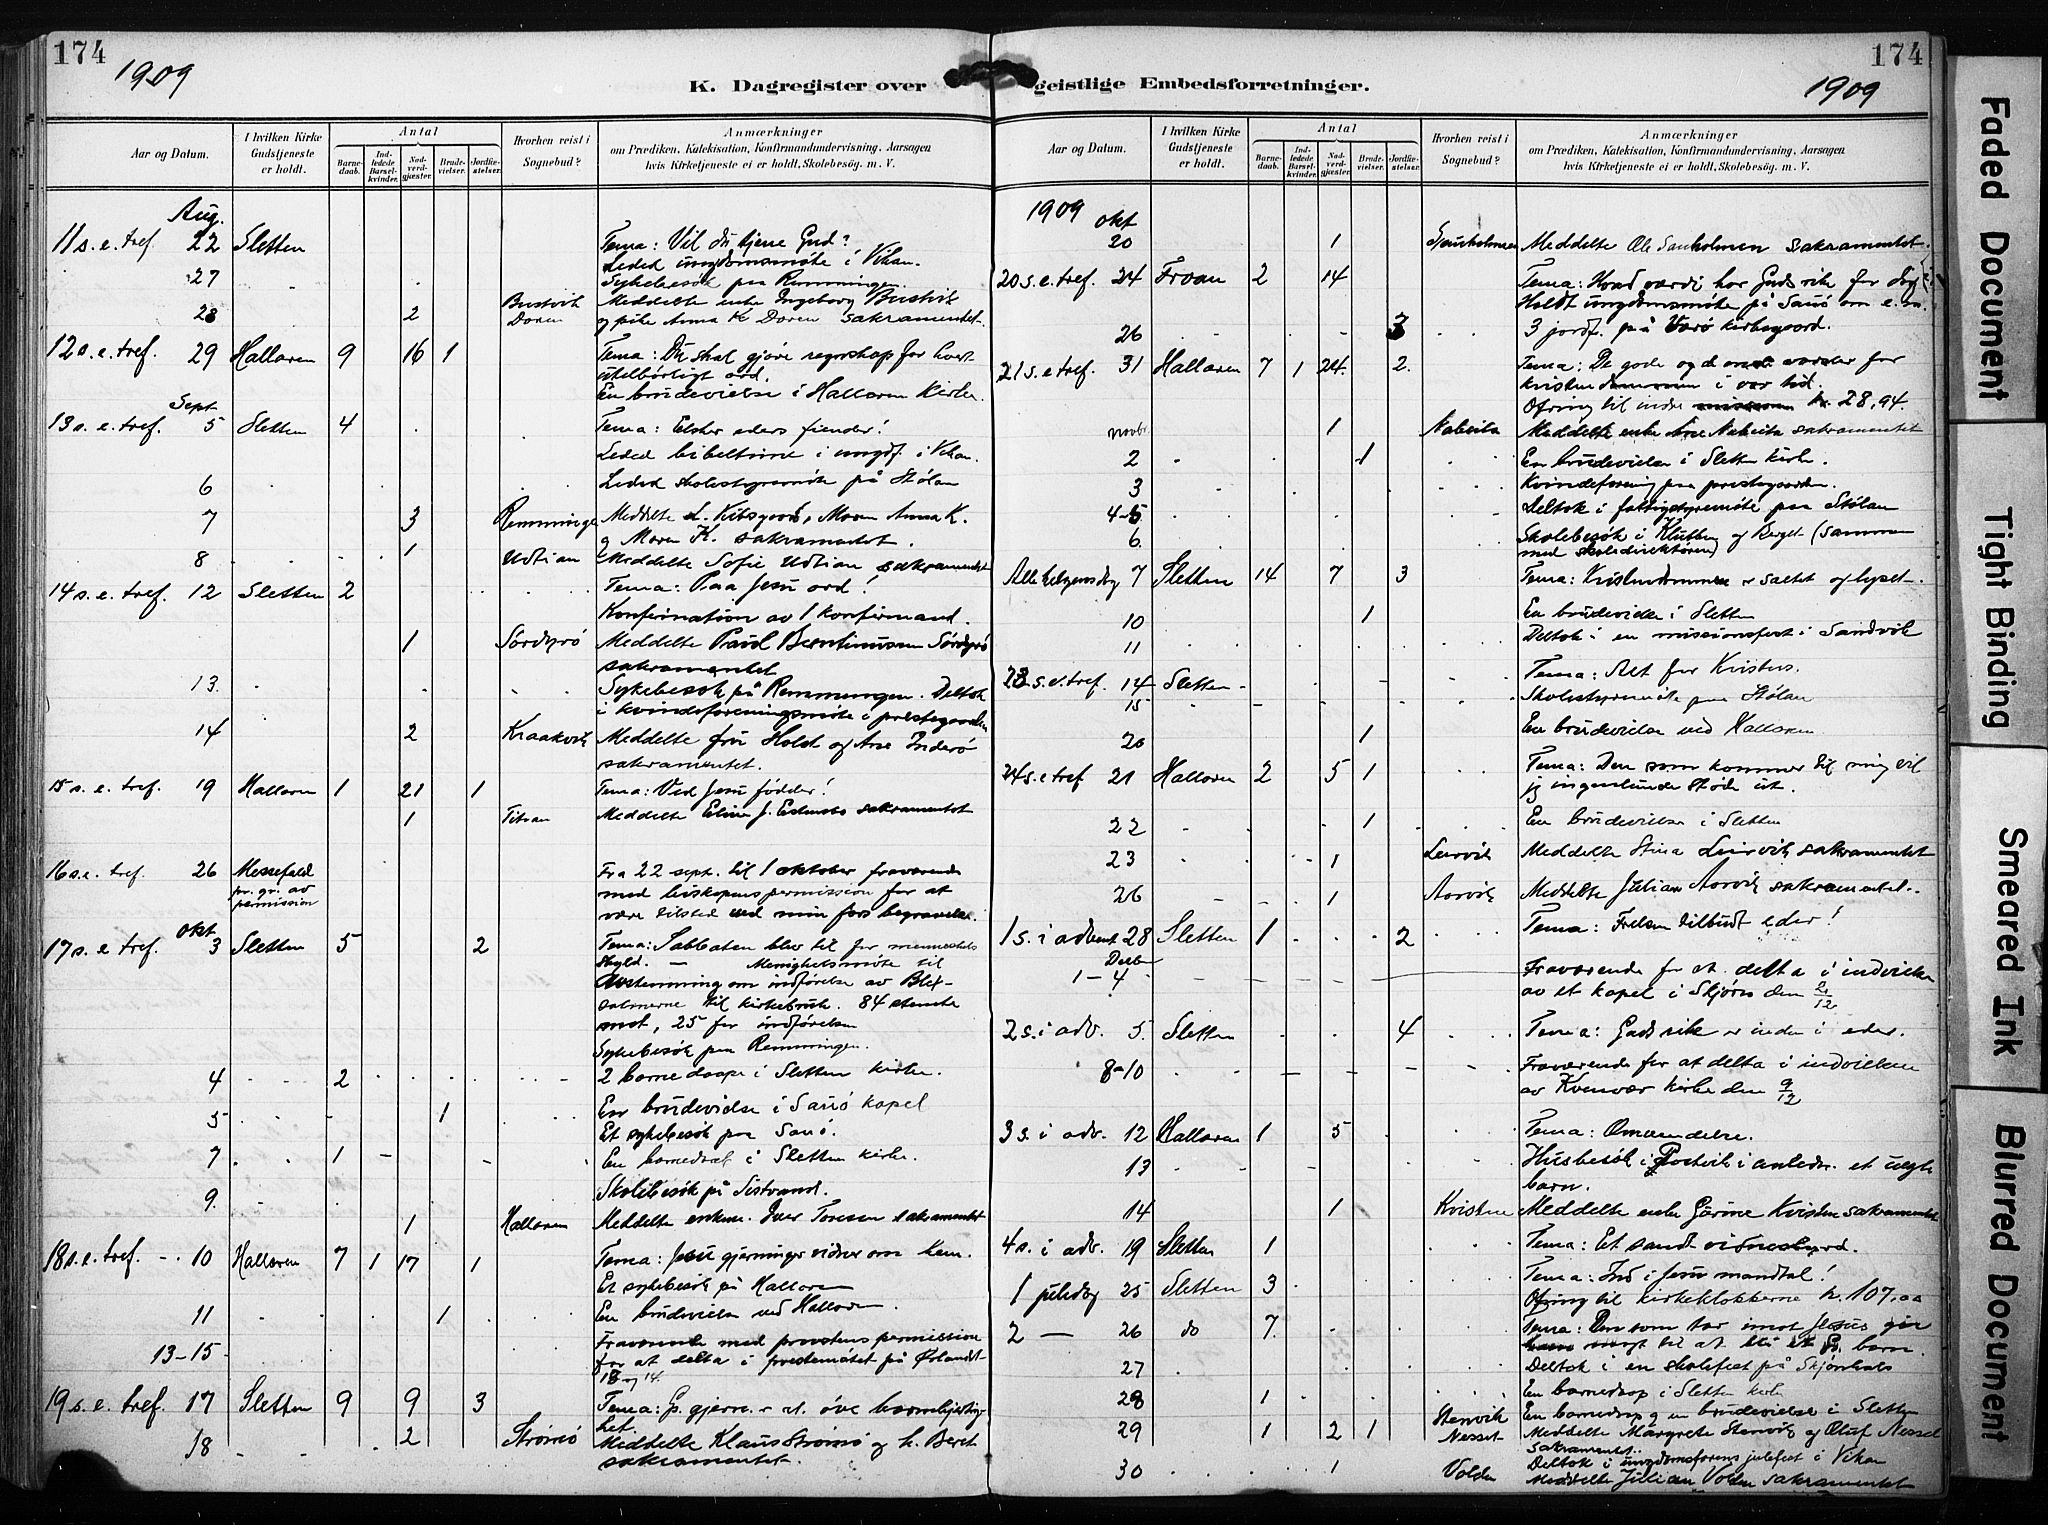 174
1909
K. Dagregister over
Aar og Datum.
I hvilken Kirke Gudstjeneste er holdt.
Antal
Barnedaab.
Indledede Barselkvinder.
Nadverdgjæster.
Brudevielser.
Jordfæstelser.
Hvorhen reist i Sognebud?
Anmærkninger
om Prædiken, Katekisation, Konfirmandundervisning, Aarsagen
hvis Kirketjeneste ei er holdt, Skolebesög. m. V.
Aug.
11 s. e. tref. 22 Sletten Tema: Vil du tjene Gud?
Leded ungdomsmöte i Vikan.
27 Sykebesök paa Remmingen.
Bustvik Meddelte enke Ingeborg Bustvik
28 2 og pike Anna K sakramentet.
12 s. e. tref. 29 Hallaren 9 16 1 Tema: Du skal gjøre regnskap for hvert
utilbörligt ord.
En brudevielse i Hallaren Kirke.
Sept
13 s. e. tref. 5 Sletten 4 Tema: Elsker eders fiender!
Leded bibeltime i ungdf. i Vikan.
6 Leded skolestyremöte på Stölan
7 3 Remminge Meddelte Maren Anna K.
og Maren K. sakramentet.
8 1 Udtian Meddelte Sofie Udtian sakramentet
14 s. e. tref. 12 Sletten 2 Tema: Paa Jesu ord!
Konfirmation av 1 konfirmand.
1 Sördyrö Meddelte Paul Berntinussen Sördyrö
sakramentet
13. Sykebesök på Remmingen. Deltok
i kvindeforeningsmöte i prestegaarden
14 2 Kraakvik Meddelte fru Holst og
sakramentet.
15 s. e. tref. 19 Hallaren 1 21 1 Tema: Ved Jesu födder!
1 Titran Meddelte Eline J. sakramentet
16 s. e. tref. 26 Messefald Fra 22 sept. til 1 oktober fraværende
pr. gr. av med biskopens permission for at
permission være tilsted ved min fars begravelse.
okt
17 s. e tref. 3 Sletten 5 2 Tema: Sabbaten blev til for menneskets
skyld. — Menighetsmöte til
Avstemning om indførelse av Blix-
salmerne til kirkebruk. 84 stemte
mot, 25 for indførelsen
Sykebesök paa Remmingen.
4 2 2 barnedaape i Sletten kirke.
5 1 En brudevielse i Sauö kapel
Et sykebesök paa Sauö.
7 1 En barnedaab i Sletten kirke.
9. Skolebesök på Sistrand.
1 Hallaren Meddelte enkem. Iver Toresen sakramentet
18 s. e. tref. 10 Hallaren 7 1 17 1 Tema: Jesu gjerninger vidner om ham.
Et sykebesök på Hallaren
11 1 En brudevielse ved Hallaren.
Fraværende med provstens permission
13-15 for at delta i prestemötet på Ørlandet
13 og 14.
19 s. e. tref. 17 Sletten 9 9 3 Tema: G. gjern. er at öve barmhjertig-
het.
18 2 Strömö Meddelte Klaus Strömö og h. Beret
sakramentet.
174
1909
geistlige Embedsforretninger.
Aar og Datum.
I hvilken Kirke Gudstjeneste er holdt.
Antal
Barnedaab.
Indledede Barselkvinder.
Nadverdgjæster.
Brudevielser.
Jordfæstelser.
Hvorhen reist i Sognebud?
Anmærkninger
om Prædiken, Katekisation, Konfirmandundervisning, Aarsagen
hvis Kirketjeneste ei er holdt, Skolebesög. m. V.
1909 okt
20 1 Meddelte Ole sakramentet.
20 s. e. tref. 24 Froan 2 14 Tema: Hvad værdi har Guds rike for dig?
Holdt ungdomsmöte på Sauö om e. m.
26 3 3 jordf. på kirkegaard.
21 s. e. tref. 31 Hallaren 7 1 24. 2. Tema: De gode og d onde varsler for
kristendommen i vor tid.
Ofring til indre missionen kr. 28,94.
novbr. 1 Nabeita Meddelte enke sakramentet
2 1 En brudevielse i Sletten kirke.
3 Kvindeforening paa prestegaarden.
4-5 Deltok i fattigstyremöte paa Stölan
6. Skolebesök i og Berget (sammen
med skoledirektören)
Allehelgensdag 7 Sletten 14 7 3 Tema: Kristendommen er saltet og lyset.
10 1 En brudevielse i Sletten
11 Deltok i en missionsfest i Sandvik
23. s. e. tref. 14 Sletten Tema: Alt for Kristus.
15 Skolestyremöte paa Stölan
20 1 En brudevielse ved Hallaren
24 s. e. tref 21 Hallaren 2 5 1 Tema: Den som kommer til mig vil
jeg ingenlunde støde ut.
22 1 En brudevielse i Sletten
23 1 Leirvik Meddelte Stina Leirvik sakramentet
26 1 Aarvik Meddelte Julian Aarvik sakramentet.
1 s. i advent 28 Sletten 1 2 Tema: Frelsen tilbudt eder!
Decbr
1-4 Fraværende for at delta i indvielsen
av et kapel i Skjörn den 2/12
2 s. i adv. 5. Sletten 4 Tema: Guds rik er inden i eder.
8-10 Fraværende for at delta i indvielsen
av Kvenvær kirke den 9/12
3 s. i adv. 12 Hallaren 1 5 Tema: Omvendelse.
13 Husbesök i i anledn. et uegte
barn.
14 1 Kvisten Meddelte enke Kvisten sakramentet
4 s. i adv. 19 Sletten 1 Tema: Et sandt vidnesbyrd.
1 juledag 25 Sletten 3 Tema: Ind i Jesu mandtal!
Ofring til kirkeklokkerne kr. 107,00
2 — 26 do 7. Tema: Den som tar imot Jesus gir
han magt til at bli et G. barn.
27 Deltok i en skolefest på Skjönhals
28 1 En barnedaap i Sletten kirke
29 1 2 1 Stenvik En barnedaap og en brudevielse i Sletten
Nesset Meddelte Margrete Stenvik og Olaf Nesset
sakramentet.
30 1 Volden Deltok i ungdomsforens julefest i Vikan
Meddelte Julian Volden sakramentet
Faded Document
Tight Binding
Smeared Ink
Blurred Document